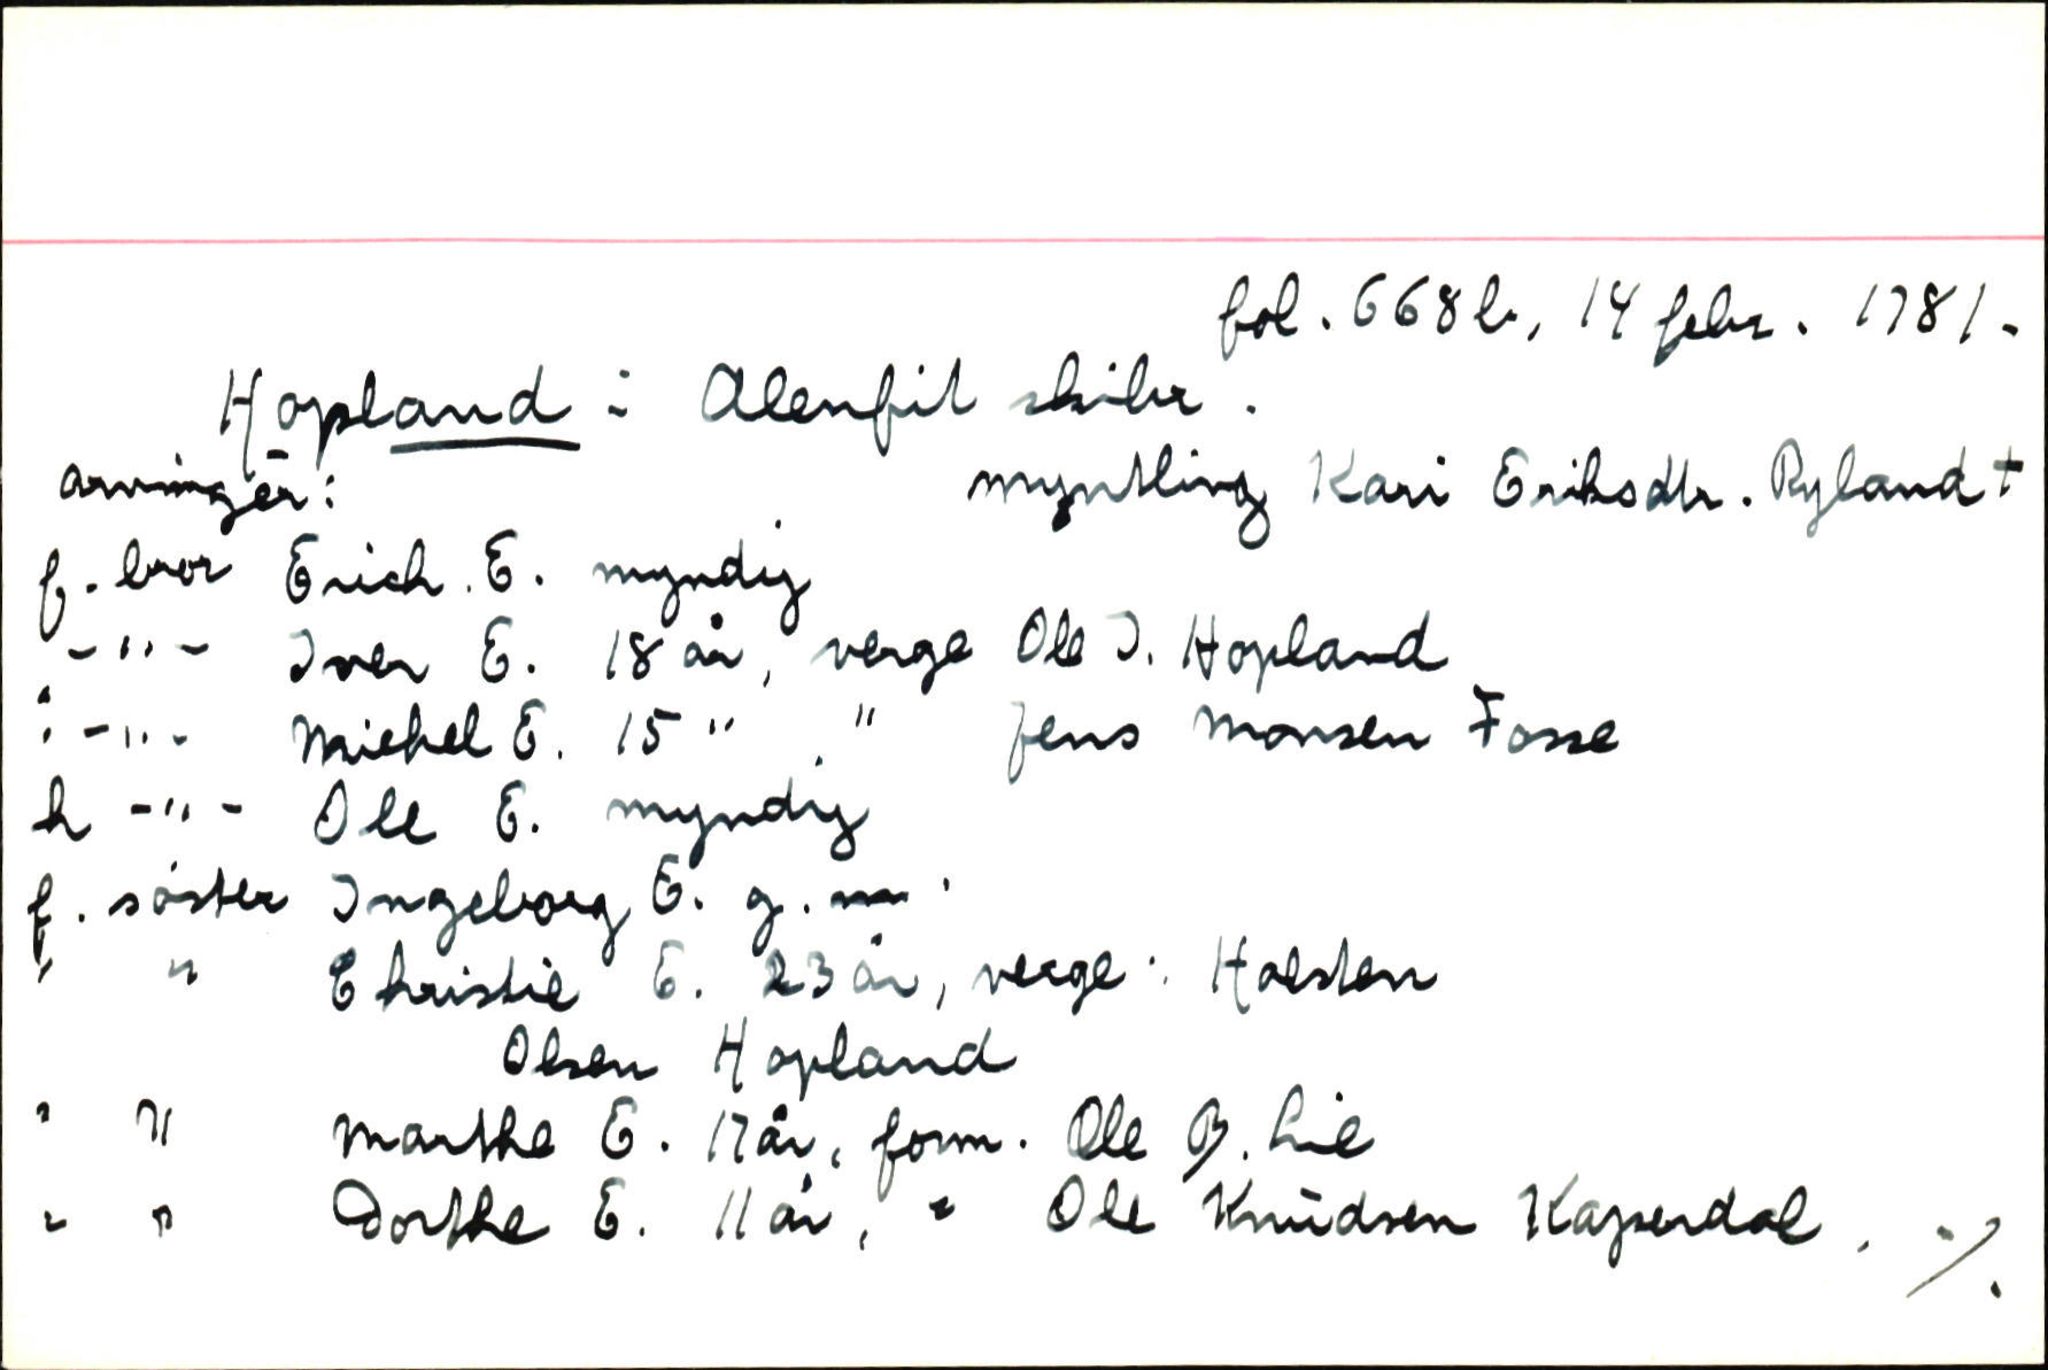 fol. 668b, 14 febr. 1781.
Hopland i Alenfit skibr.
arvinger: myntling Kari Eriksdtr. Ryland †
f. bror Erich E. myndig
-"- Iver E. 18 år, verge Ole I. Hopland
-"- Michel E. 15 " " Jens Monsen Fosse
h -"- Ole E. myndig
f. søster Ingeborg E. g. m.
" " Christie E. 23 år, verge: Holsten
Olsen Hopland
" " Marthe E. 17 år, form. Ole B. Lie
" " Dorthe E. 11 år, " Ole Knudsen Kaperdal. ./.